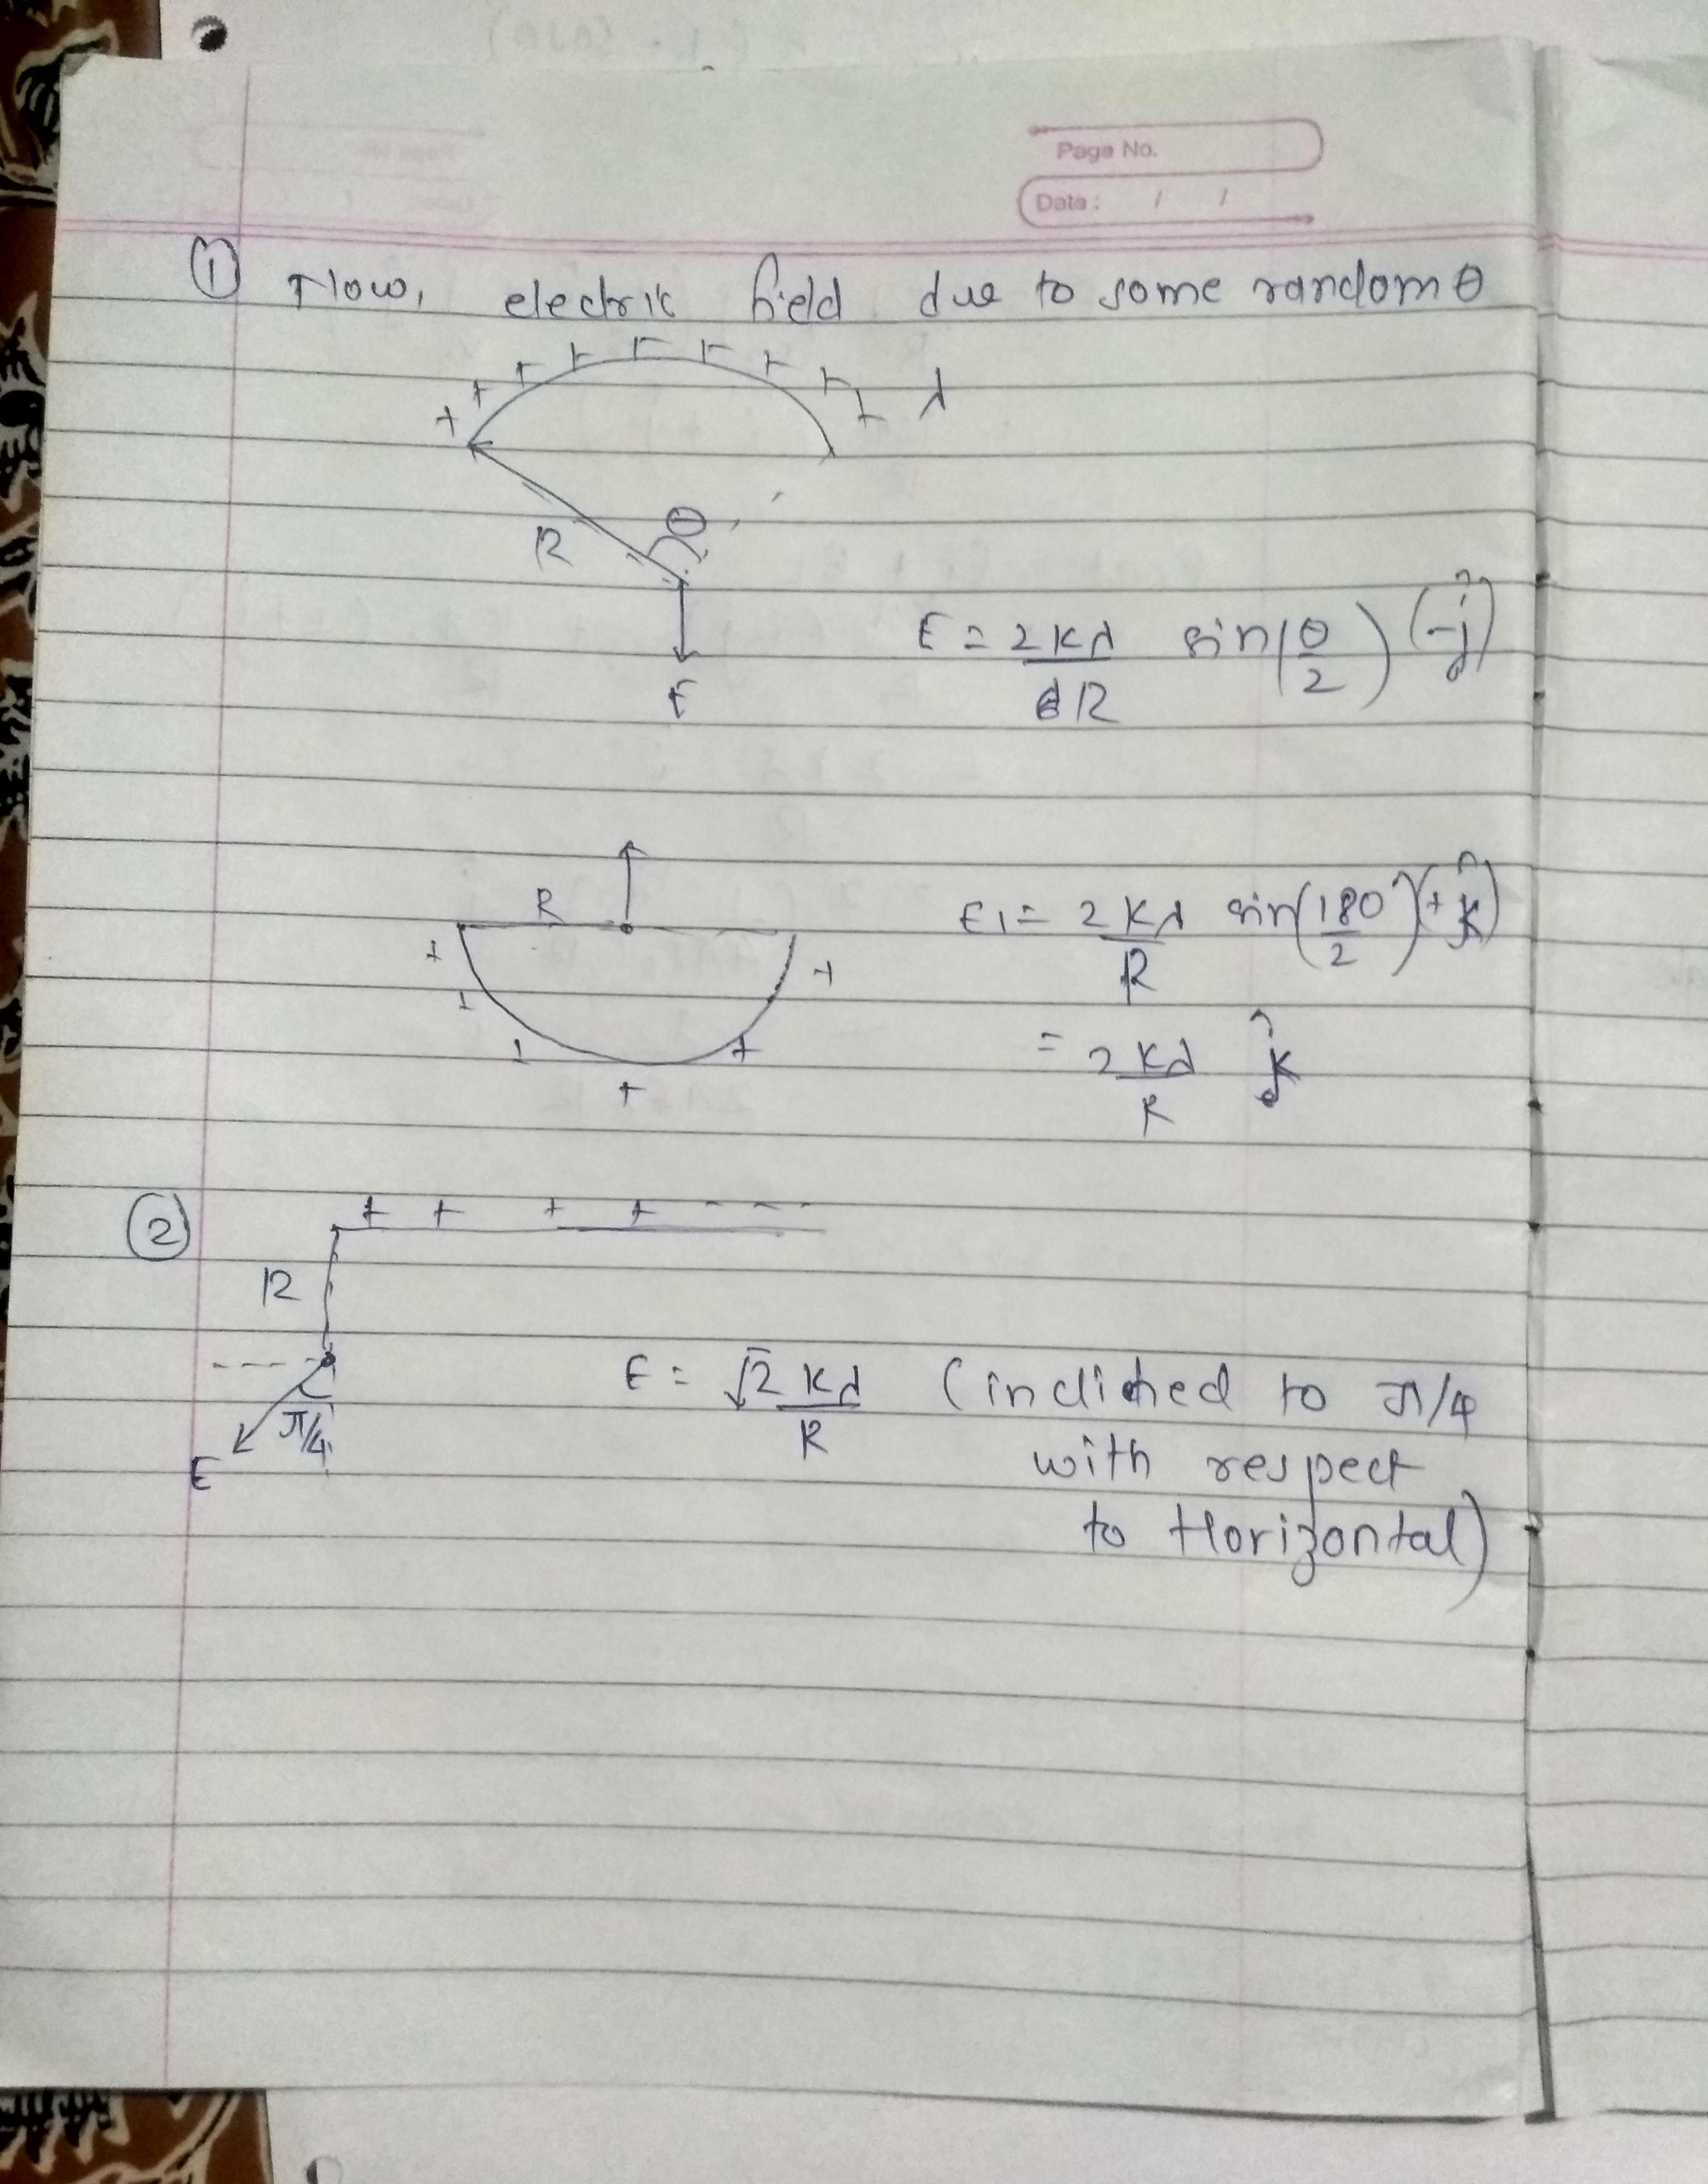 Page No.
Date : / /
① Now, electric field due to some random θ
+ + + + + + + + + λ
R θ
E
E = 2Kλ/R sin(θ/2) (-ĵ)
R
+ + + + + + +
E1 = 2Kλ/R sin(180°/2) (+ĵ)
= 2Kλ/R ĵ
② + + + + - - - -
R
π/4
E
E = √2 Kλ/R (inclined to π/4
with respect
to Horizontal)